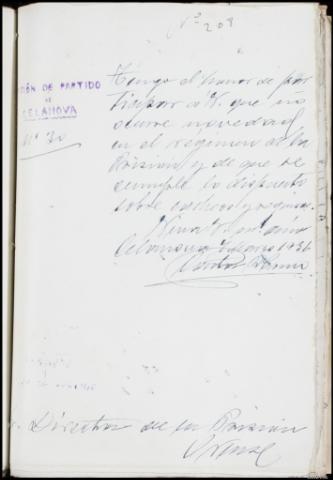 Nº 209
PRISIÓN DE PARTIDO
DE
CELANOVA
Nº 30
Tengo el honor de par
ticipar á V. que no
ocurre novedad
en el regimen de la
Prisión y de que se
cumple lo dispuesto
sobre cacheos y requisas.
Viva V. m.s años
Celanova 1936
Director de la Prisión
Orense